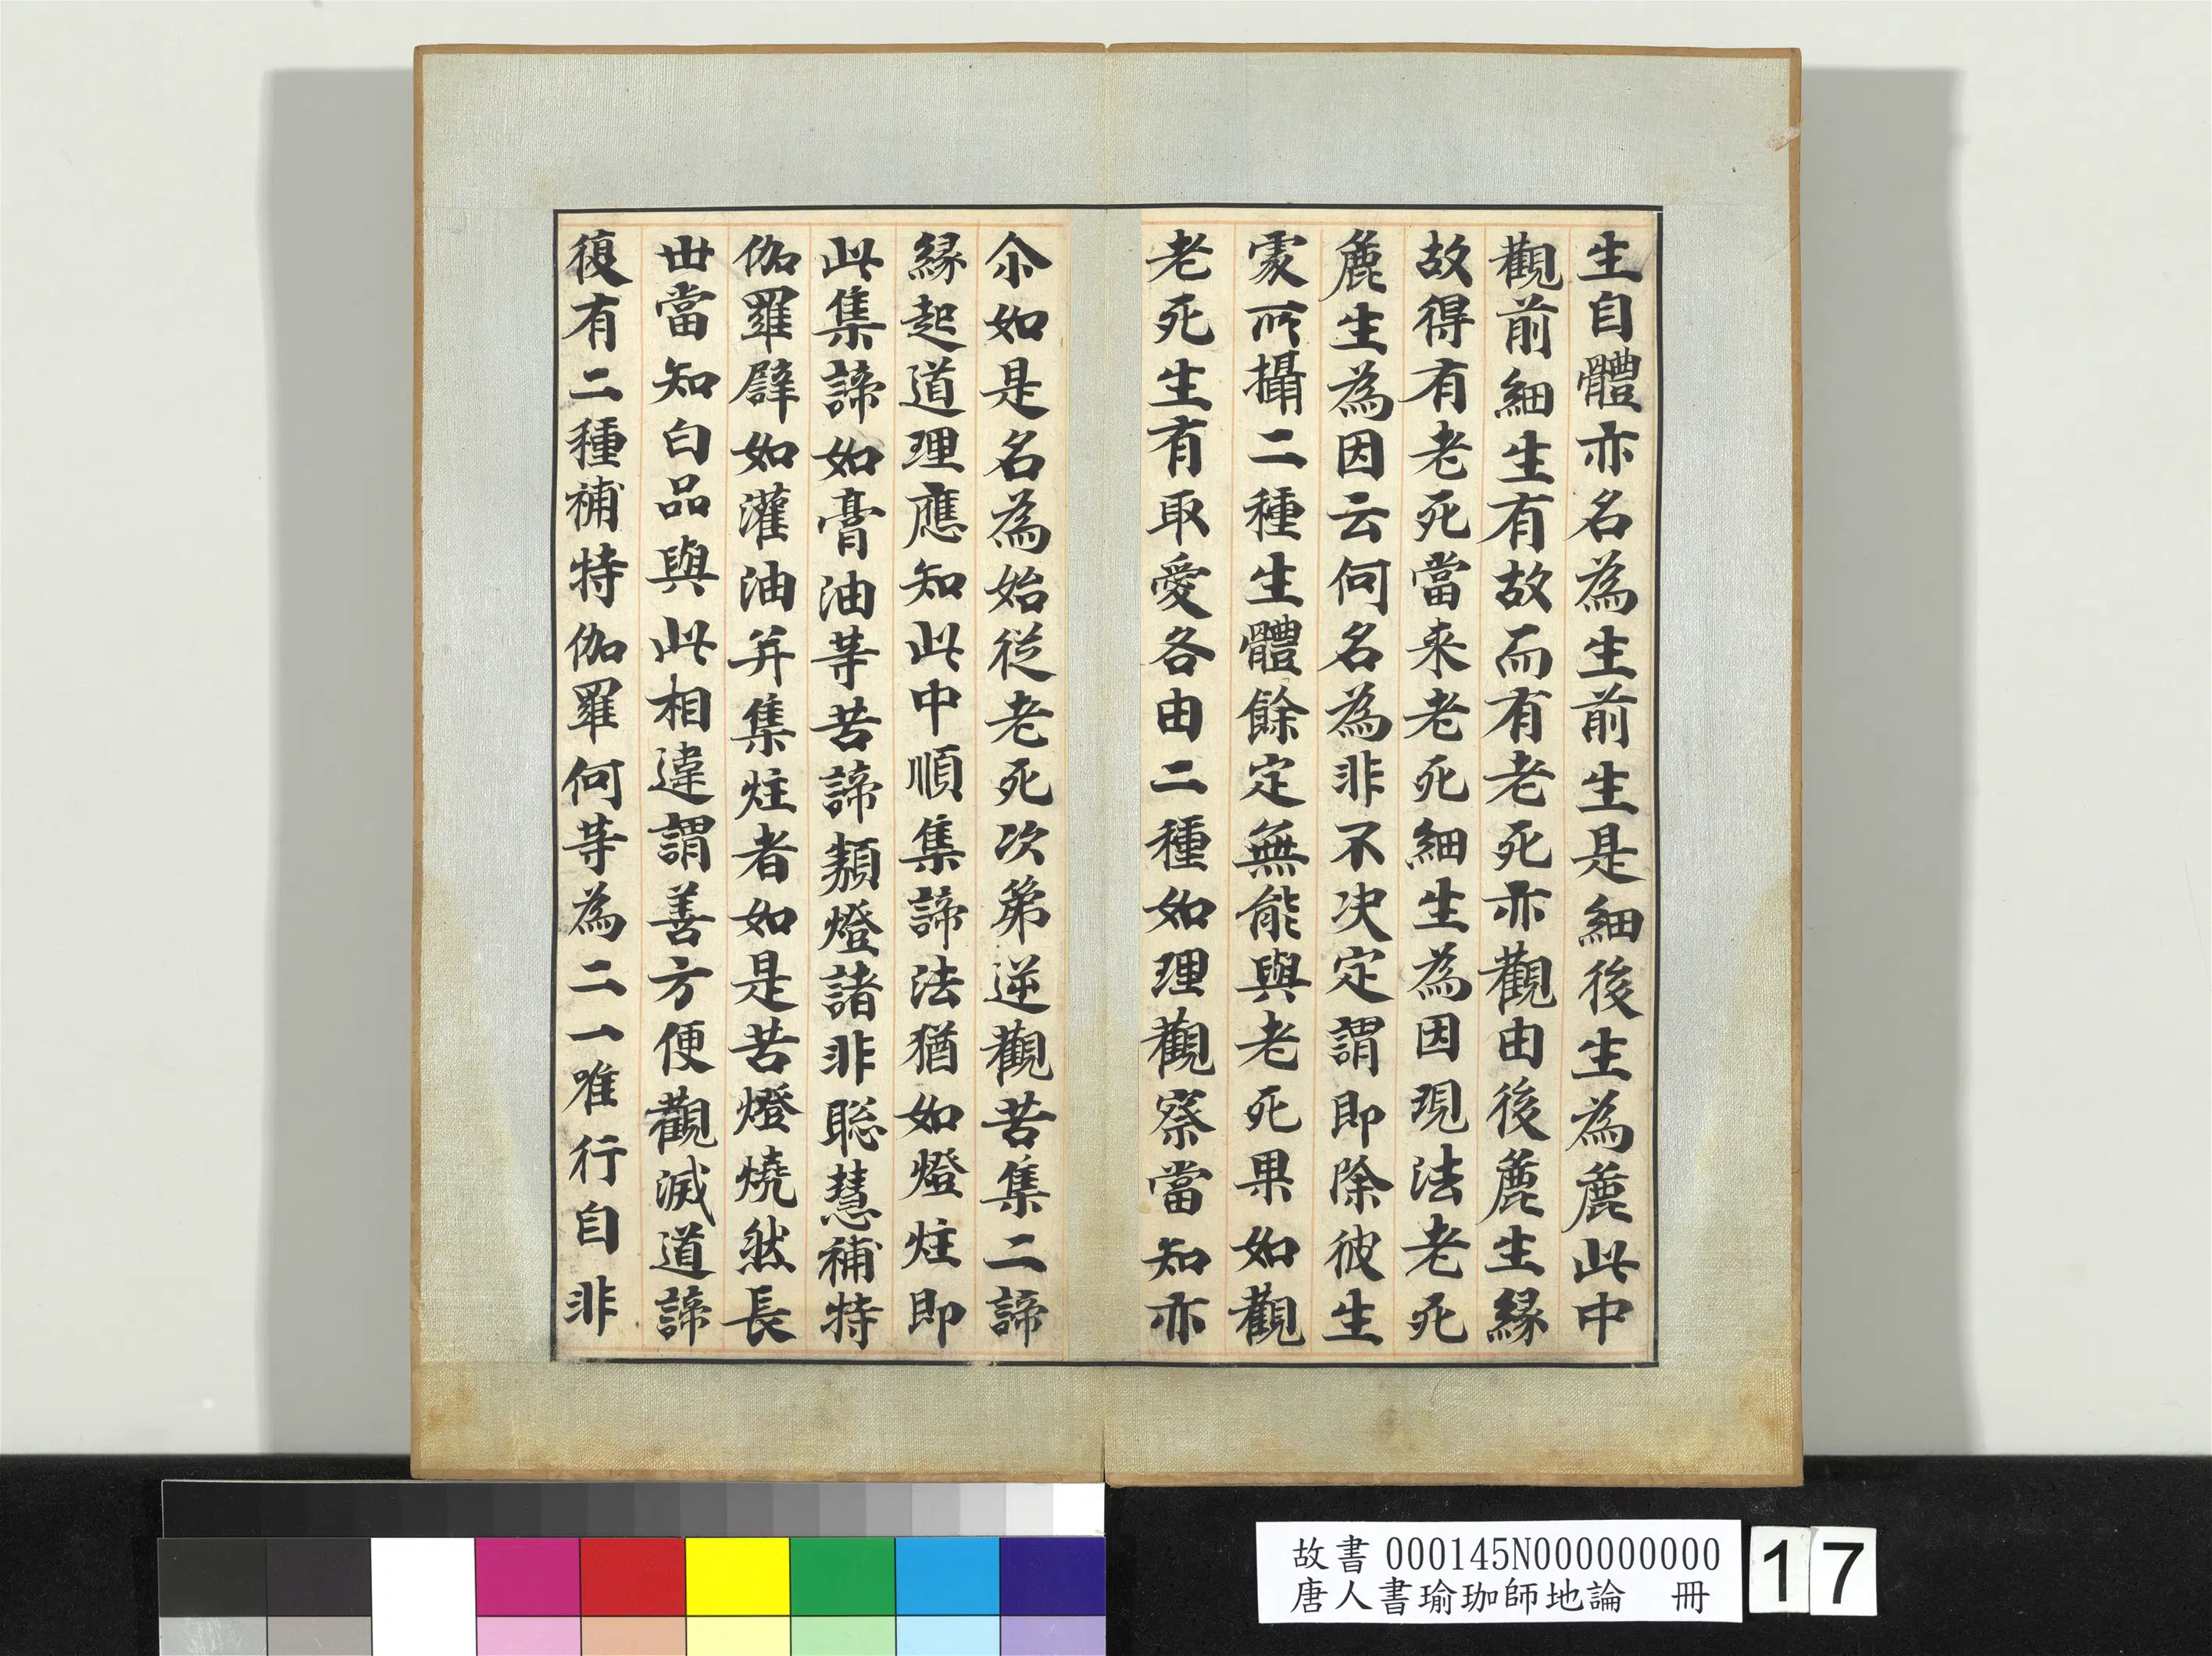 生自體亦名為生前生是細後生為麁此中
觀前細生有故而有老死亦觀由後麁生緣
故得有老死當来老死細生為因現法老死
麁生為因云何名為非不决定謂即除彼生
處所攝二種生體餘定無能與老死果如觀
老死生有取愛各由二種如理觀察當知亦
尒如是名為始從老死次第逆觀苦集二諦
緣起道理應知此中順集諦法猶如燈炷即
此集諦如膏油等苦諦類燈諸非聡慧補特
伽羅譬如灌油并集炷者如是苦燈燒然長
世當知白品與此相違謂善方便觀滅道諦
復有二種補特伽羅何等為二一唯行自非
故書 000145N000000000
唐人書瑜珈師地論 冊
17